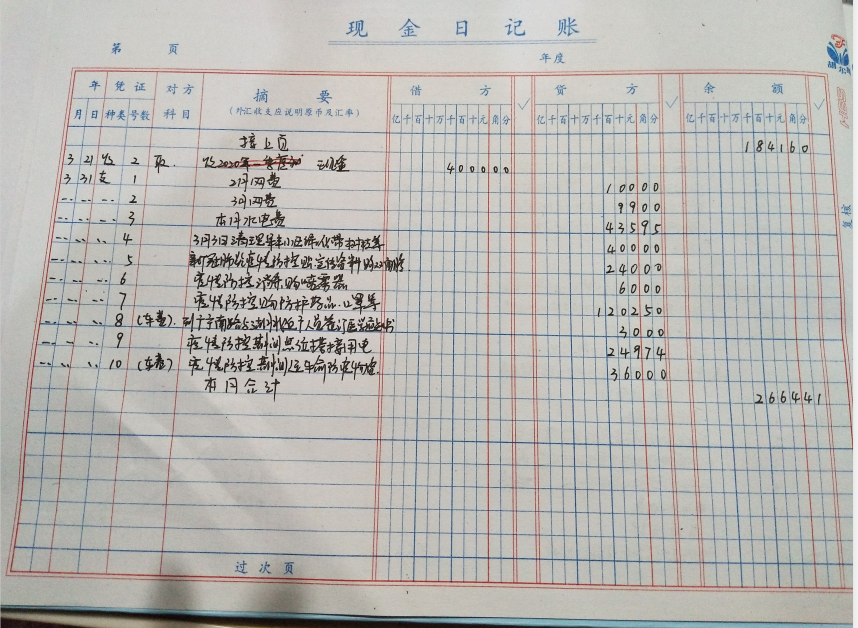 现金日记账
第 页
年度
年 凭证 对方 摘要 借方 贷方 余额
月 日 种类 号数 科目 (外汇收支应说明原币及汇率) 亿千百十万千百十元角分 亿千百十万千百十元角分 亿千百十万千百十元角分
接上页 184160
3 21 收 2 取. 收2020年 现金 400000
3 31 支 1 2月网费 10000
2 3月网费 9900
3 本月水电费 43595
4 3月3日清理 小区绿化带 40000
5 疫情防控 宣传资料 24000
6 疫情防控消杀购喷雾器 6000
7 疫情防控购防护药品.口罩等 120250
8 (车费). 到 人员签订 3000
9 疫情防控期间 用电 24974
10 (车费) 疫情防控期间 36000
本月合计 266441
过次页
复核